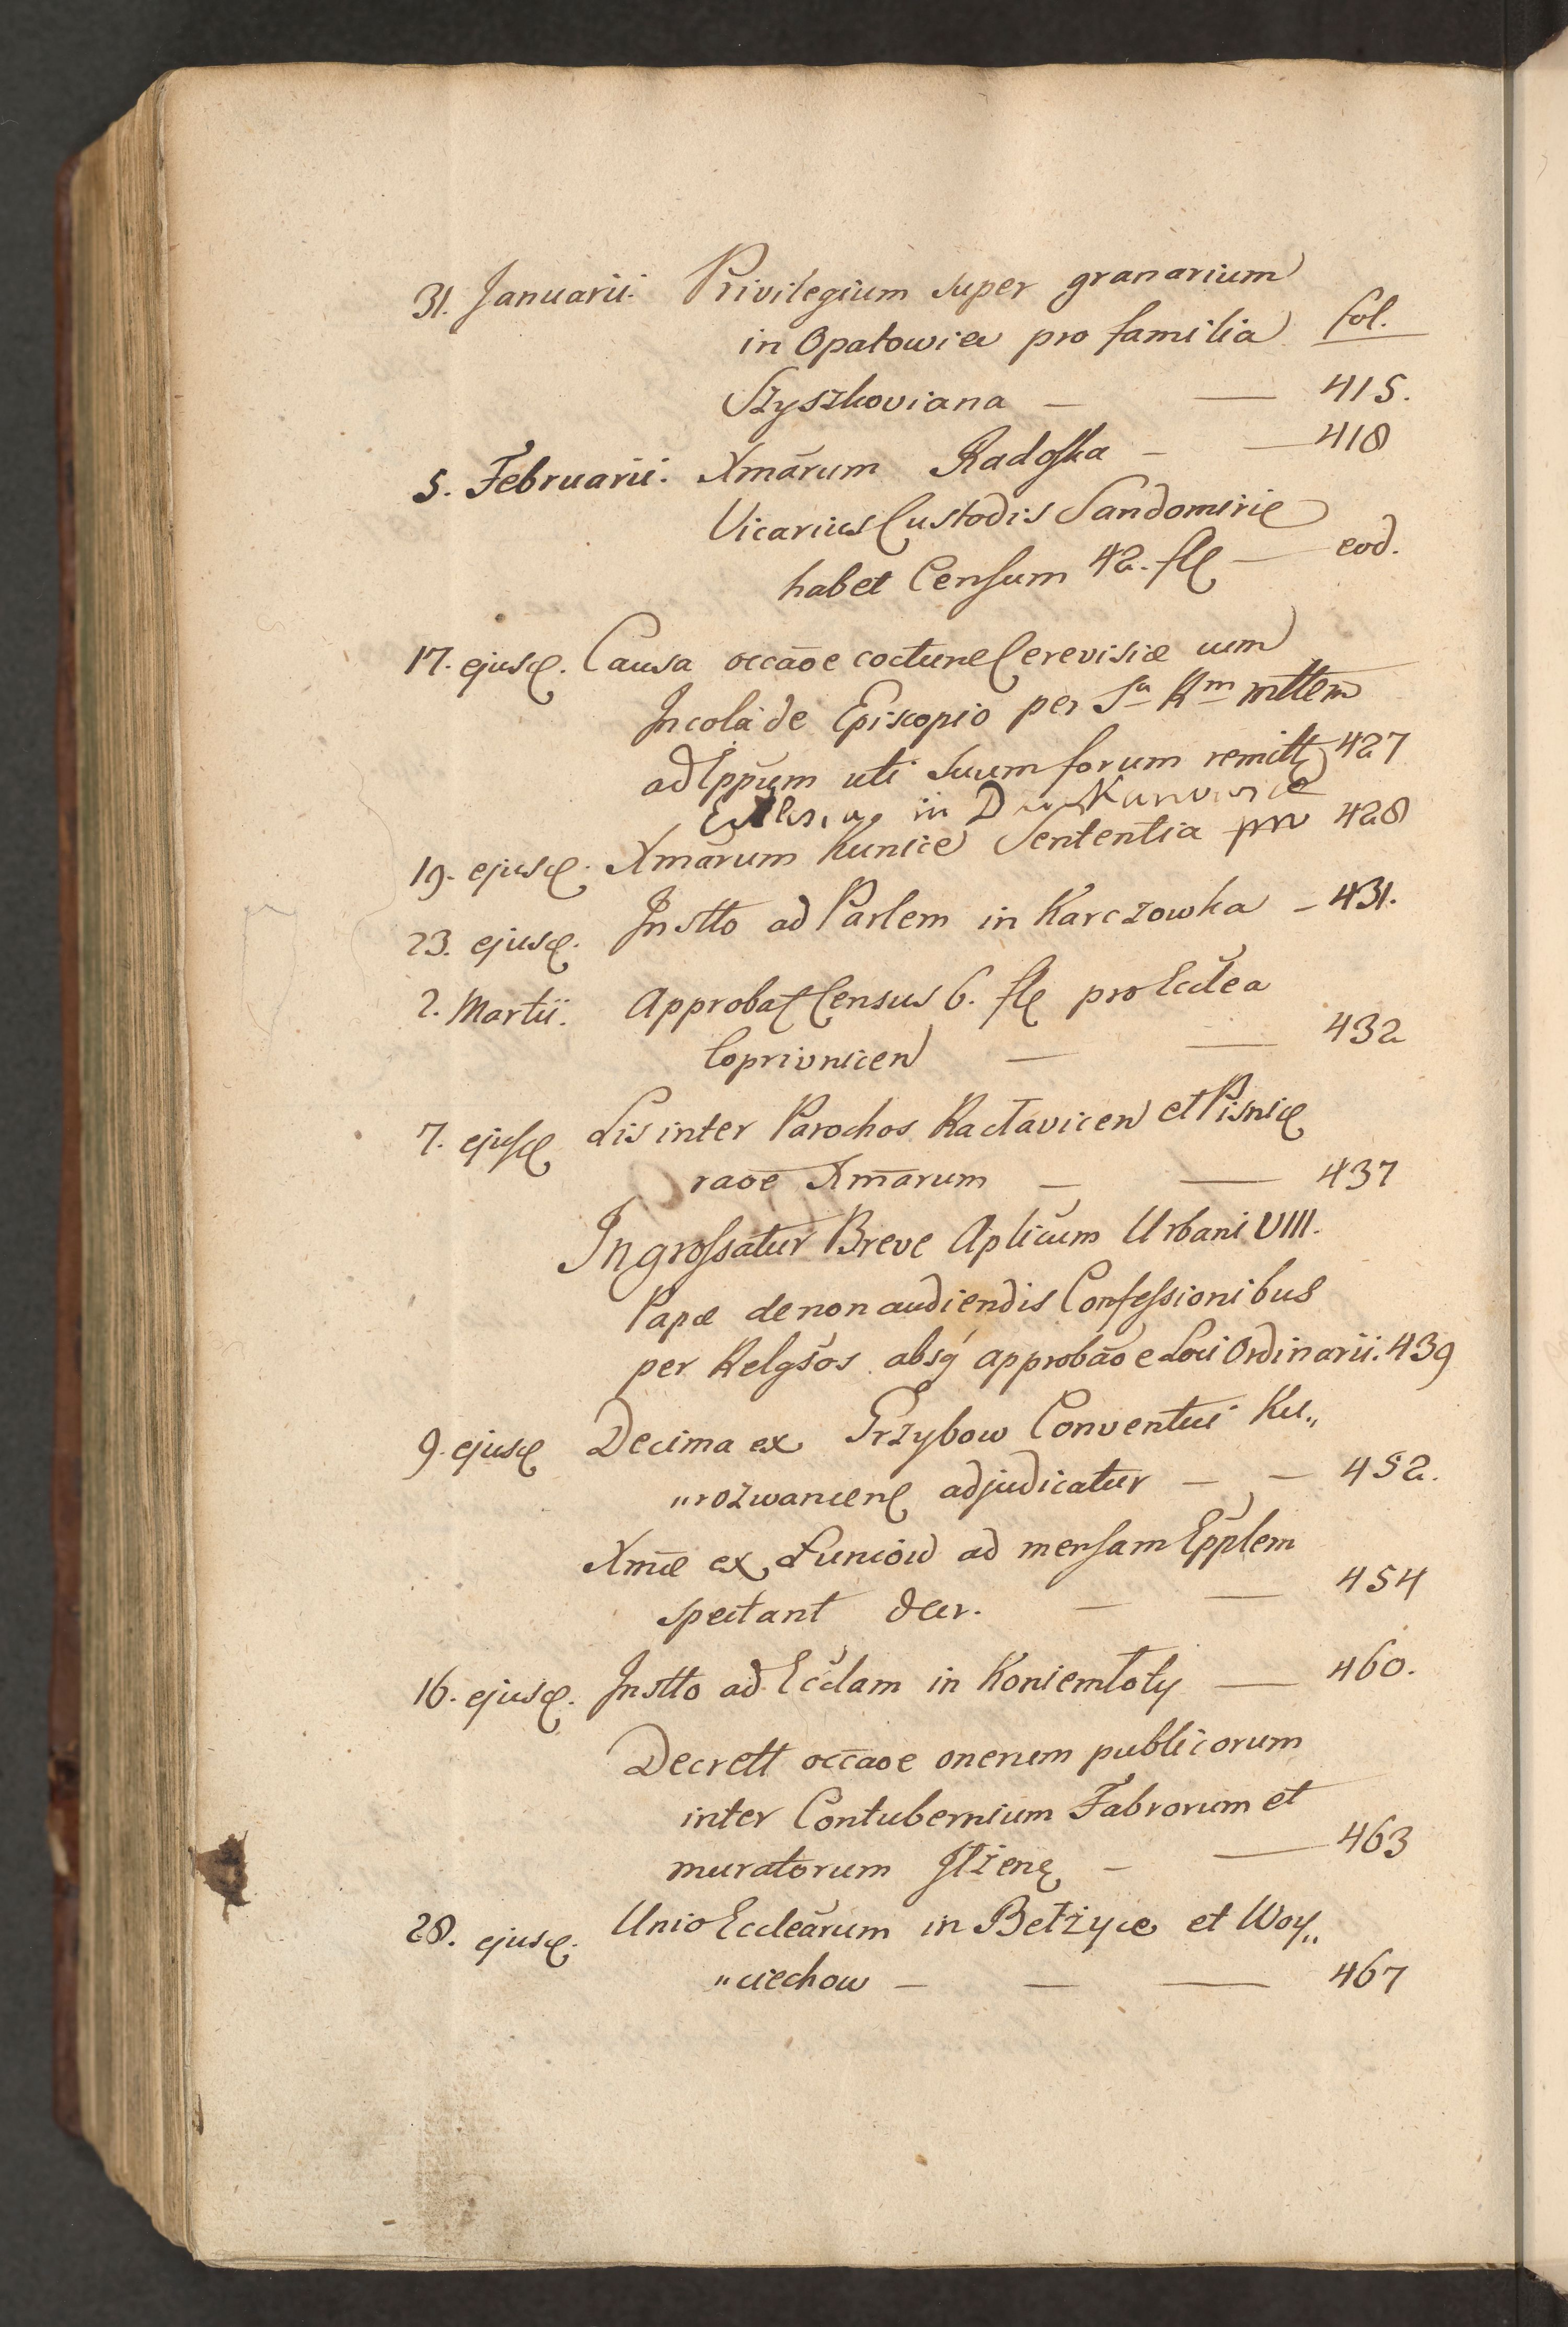 31. Januarii. Privilegium super granarium
in Opatowiec pro familia fol.
Szyszkoviana — — 415.
5. Februarii. Xmārum Radoska — — 418
Vicarius Custodis Sandomirię
habet Censum 42. flę — eod.
17. ejusđ. Causa occāōe cocturæ Cerevisiæ cum
Incola de Episcopio per Sᵃ Rᵐ mttem
ad Eppum uti suum forum remittę 427
in
19. ejusđ. Xmārum Kunice Sententia 428
23. ejusđ. Instto ad Parlem in Karczowka — 431.
2. Martii. Approbat Census 6. flę pro Eccłea
Coprivnicen — — 432
7. ejusđ Lis inter Parochos Racłavicen et Pisnicę
raōe Xmārum — — 437
Ingrossatur Breve Aplicum Urbani VIII.
Papæ de non audiendis Confessionibus
per Relgsos absq́ approbāōe Loci Ordinarii. 439
9. ejusđ Decima ex Grzybow Conventui Ku„
„rozwancenę adjudicatur — — 452.
Xmæ ex Łuniow ad mensam Epplem
spectant decr. — — 454
16. ejusđ. Instto ad Ecclam in Koniemłoty — 460.
Decrett occāōe onerum publicorum
inter Contubernium Fabrorum et
muratorum Iłżenę — — 463
28. ejusđ. Unio Eccleārum in Bełżyce et Woy„
„ciechow — — — 467